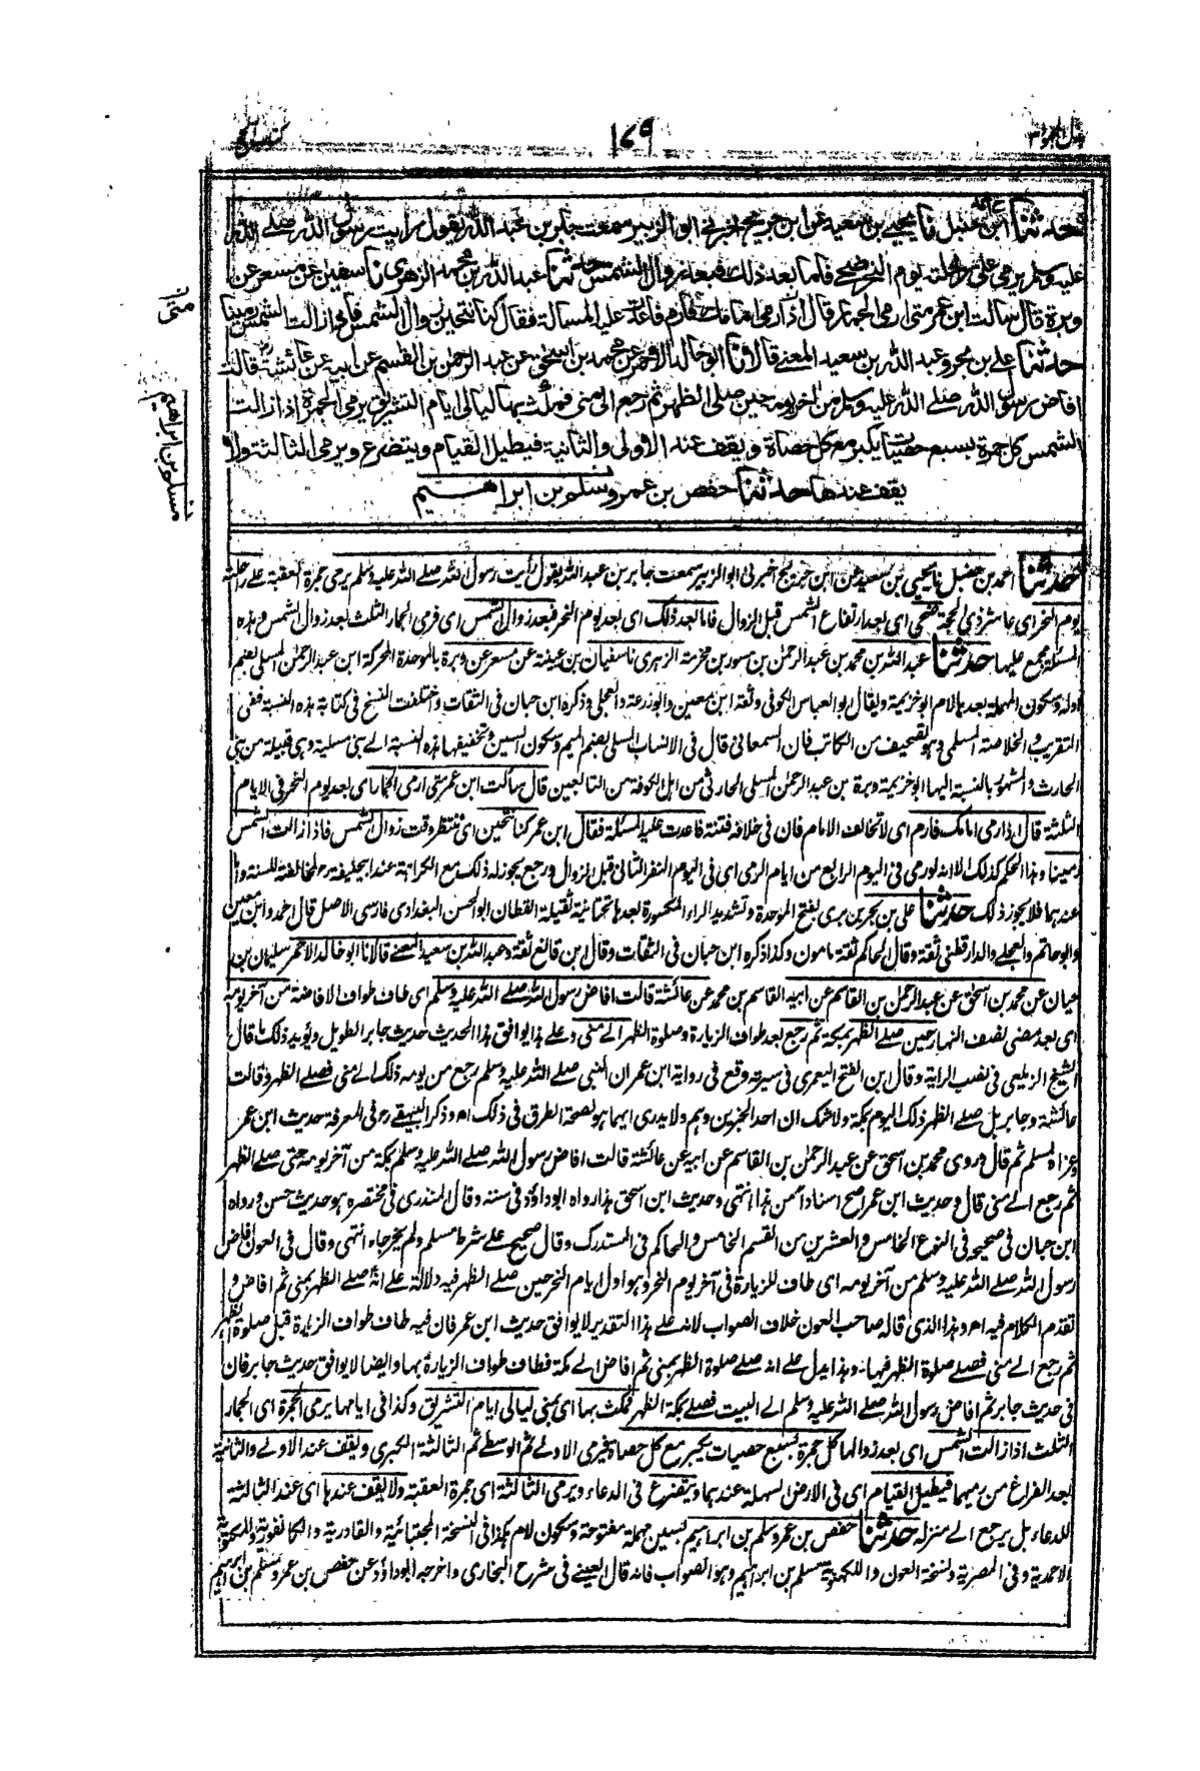 بذل المجهود ٣
١٧٩
كتاب الحج
حدثنا ابن حنبل نا يحيى بن سعيد عن ابن جريج اخبرني ابو الزبير سمعت جابر بن عبد الله يقول رايت رسول الله صلے الله
عليه وسلم يرمي على راحلته يوم النحر ضحى فاما بعد ذلك فبعد زوال الشمس حدثنا عبد الله بن محمد الزهري نا سفين عن مسعر عن
وبرة قال سالت ابن عمر متى ارمي الجمار قال اذا رمى امامك فارم فاعدت عليه المسالة فقال كنا نتحين زوال الشمس فاذا زالت الشمس رمينا
حدثنا علے بن بحر وعبد الله بن سعيد المعنے قالا نا ابو خالد الاحمر عن محمد بن اسحٰق عن عبد الرحمٰن بن القٰسم عن ابيه عن عائشة قالت
افاض رسول الله صلے الله عليه وسلم من اٰخر يومه حين صلى الظهر ثم رجع الى منى فمكث بها ليالى ايام التشريق يرمى الجمرة اذا زالت
الشمس كل جمرة بسبع حصيات يكبر مع كل حصاة ويقف عند الاولى والثانية فيطيل القيام ويتضرع ويرمى الثالثة ولا
يقف عندها حدثنا حفص بن عمر وسلم بن ابراهيم
متى
مسلم بن ابراهيم
حدثنا احمد بن حنبل نا يحيى بن سعيد عن ابن جريج اخبرني ابو الزبير سمعت جابر بن عبد الله يقول رأيت رسول الله صلے الله عليه وسلم يرمى جمرة العقبة علے راحلته
يوم النحر اى عاشر ذي الحجة ضحى اى بعد ارتفاع الشمس قبل الزوال فاما بعد ذلك اى بعد يوم النحر فبعد زوال الشمس اى فرمى الجمار الثلث بعد زوال الشمس وهذه
المسئلة مجمع عليها حدثنا عبد الله بن محمد بن عبد الرحمٰن بن مسور بن مخرمة الزهري نا سفيان بن عيينة عن مسعر عن وبرة بالموحدة المحركة ابن عبد الرحمٰن المسلى بضم
اوله وسكون المهملة بعدها لام ابو خزيمة ويقال ابو العباس الكوفي وثقه ابن معين وابو زرعة والعجلى وذكره ابن حبان في الثقات واختلفت النسخ في كتابة هذه النسبة ففى
التقريب والخلاصة السلمي وهو تصحيف من الكاتب فان السمعاني قال في الانساب المسلى بضم الميم وسكون السين وتخفيفها هذه النسبة الے بنى مسلية وهى قبيلة من بنى
الحارث والمشهور بالنسبة اليها ابو خزيمة وبرة بن عبد الرحمٰن المسلى الحارثى من اهل الكوفة من التابعين قال سألت ابن عمر متى ارمى الجمار اى بعد يوم النحر فى الايام
الثلثة قال اذا رمى امامك فارم اى لا تخالف الامام فان فى خلافه فتنة فاعدت عليه المسئلة فقال ابن عمر كنا نتحين اى ننتظر وقت زوال الشمس فاذا زالت الشمس
رمينا وهذا الحكم كذلك الا انه لو رمى فى اليوم الرابع من ايام الرمى اى فى اليوم النفر الثانى قبل الزوال ورجع يجوز له ذلك مع الكراهة عند ابيحنيفة رح لمخالفته للسنة واما
عندهما فلا يجوز ذلك حدثنا على بن بحر بن برى بفتح الموحدة وتشديد الراء المكسورة بعدها تحتانية ثقيلة القطان ابو الحسن البغدادى فارسى الاصل قال احمد وابن معين
وابو حاتم والعجلے والدارقطنى ثقة وقال الحاكم ثقة مامون وكذا ذكره ابن حبان فى الثقات وقال ابن قانع ثقة وعبد الله بن سعيد المعنے قالا نا ابو خالد الاحمر سليمان بن
حيان عن محمد بن اسحٰق عن عبد الرحمٰن بن القاسم عن ابيه القاسم بن محمد عن عائشة قالت افاض رسول الله صلے الله عليه وسلم اى طاف طواف الافاضة من آخر يومه
اى بعد مضى نصف النهار حين صلے الظهر بمكة ثم رجع بعد طواف الزيارة وصلوة الظهر الے منى وعلے هذا يوافق هذا الحديث حديث جابر الطويل ويؤيد ذلك ما قال
الشيخ الزيلعى فى نصب الراية وقال ابن الفتح اليعمرى فى سيرته وقع فى رواية ابن عمر ان النبى صلے الله عليه وسلم رجع من يومه ذلك الے منى فصلے الظهر وقالت
عائشة وجابر بل صلے الظهر ذلك اليوم بمكة ولا شك ان احد الخبرين وهم ولا يدرى ايهما هو لصحة الطرق فى ذلك اه وذكر البيهقے رح فى المعرفة حديث ابن عمر
وعزاه لمسلم ثم قال وروى محمد بن اسحق عن عبد الرحمٰن بن القاسم عن ابيه عن عائشة قالت افاض رسول الله صلے الله عليه وسلم بمكة من آخر يومه حتى صلے الظهر
ثم رجع الے منى قال وحديث ابن عمر اصح اسنادا من هذا انتهى وحديث ابن اسحق هذا رواه ابو داؤد فى سننه وقال المنذرى فى مختصره هو حديث حسن ورواه
ابن حبان فى صحيحه فى النوع الخامس والعشرين من القسم الخامس والحاكم فى المستدرك وقال صحيح علے شرط مسلم ولم يخرجاه انتهى وقال فى العون افاض
رسول الله صلے الله عليه وسلم من آخر يومه اى طاف للزيارة فى آخر يوم النحر وهو اول ايام النحر حين صلے الظهر فيه دلالة علے انه صلے الظهر بمنى ثم افاض و
تقدم الكلام فيه اه وهذا الذى قاله صاحب العون خلاف الصواب لانه علے هذا التقدير لا يوافق حديث ابن عمر فان فيه طاف طواف الزيارة قبل صلوة الظهر
ثم رجع الے منى فصلے صلوة الظهر فيها وهذا يدل علے انه صلے صلوة الظهر بمنى ثم افاض الے مكة فطاف طواف الزيارة بها وايضا لا يوافق حديث جابر فان
فى حديث جابر ثم افاض رسول الله صلے الله عليه وسلم الے البيت فصلے بمكة الظهر فمكث بها اى بمنى ليالى ايام التشريق وكذا فى ايامها يرمى الجمرة اى الجمار
الثلث اذا زالت الشمس اى بعد زوالها كل جمرة بسبع حصيات يكبر مع كل حصاة فيرمى الاولے ثم الوسطے ثم الثالثة الكبرى ويقف عند الاولے والثانية
بعد الفراغ من رميهما فيطيل القيام اى فى الارض السهلة عندهما ويتضرع فى الدعاء ويرمى الثالثة اى جمرة العقبة ولا يقف عندها اى عند الثالثة
للدعاء بل يرجع الے منزله حدثنا حفص بن عمر وسلم بن ابراهيم بسين مهملة مفتوحة وسكون لام هكذا فى النسخة المجتبائية والقادرية والكانفورية والمكتوبة
الاحمدية وفى المصرية ونسخة العون واللكهنوية مسلم بن ابراهيم وهو الصواب فانه قال العينے فى شرح البخارى واخرجه ابو داؤد عن حفص بن عمر ومسلم بن ابراهيم